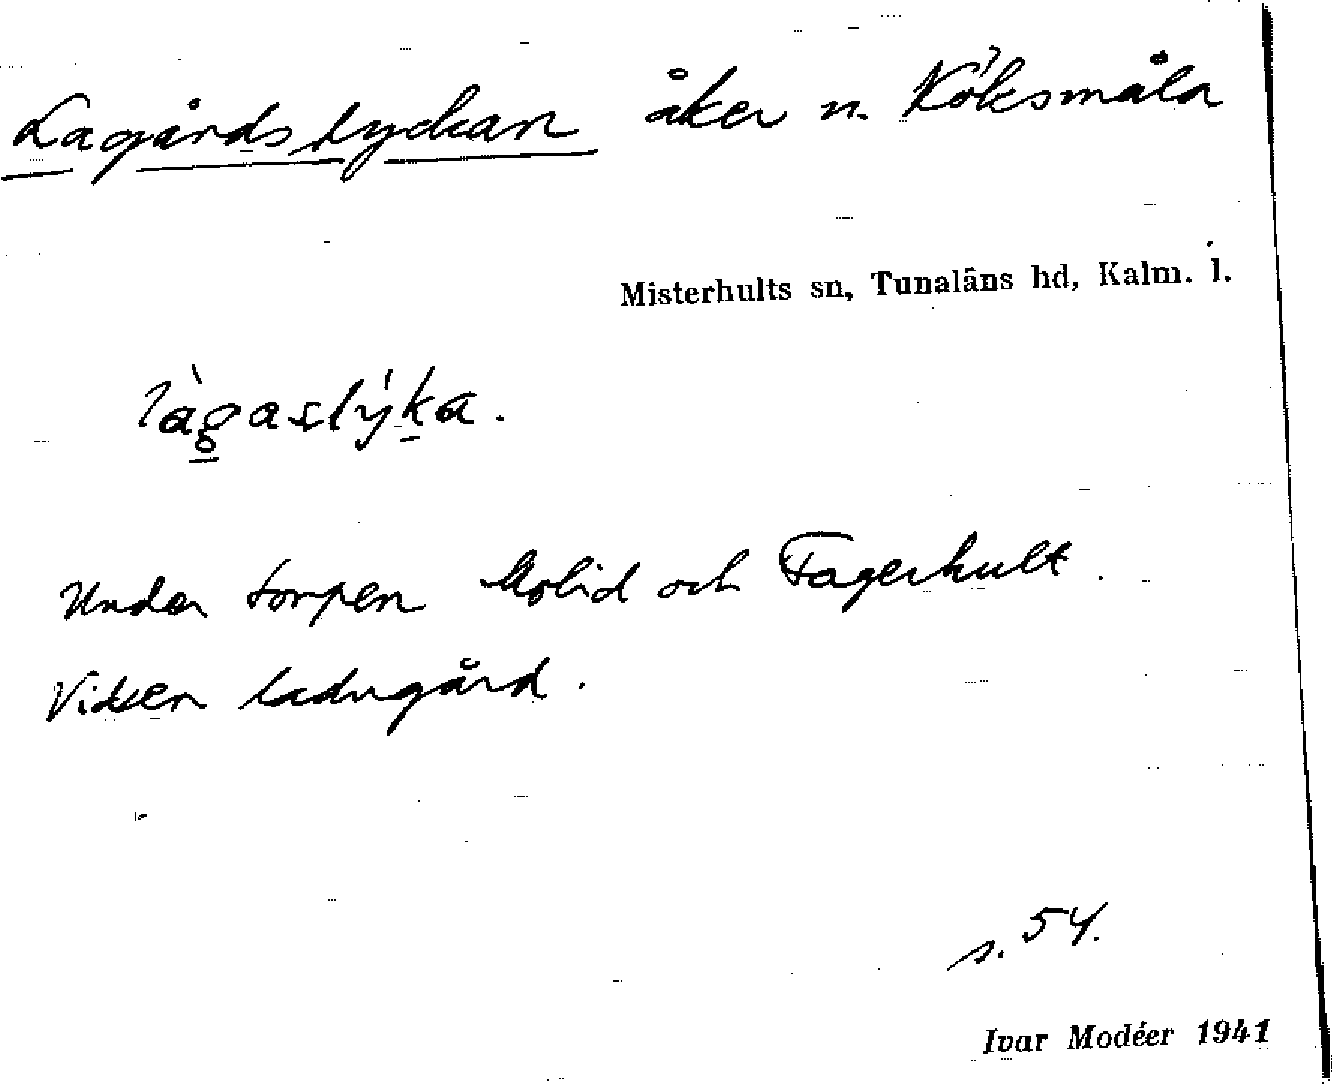 Lagårdslyckan åker n. Köksmåla
Misterhults sn, Tunaläns hd, Kalm. l.
làgaslýka.
Under torpen och Fagerhult.
Vidsen ladugård.
s. 54.
Ivar Modéer 1941